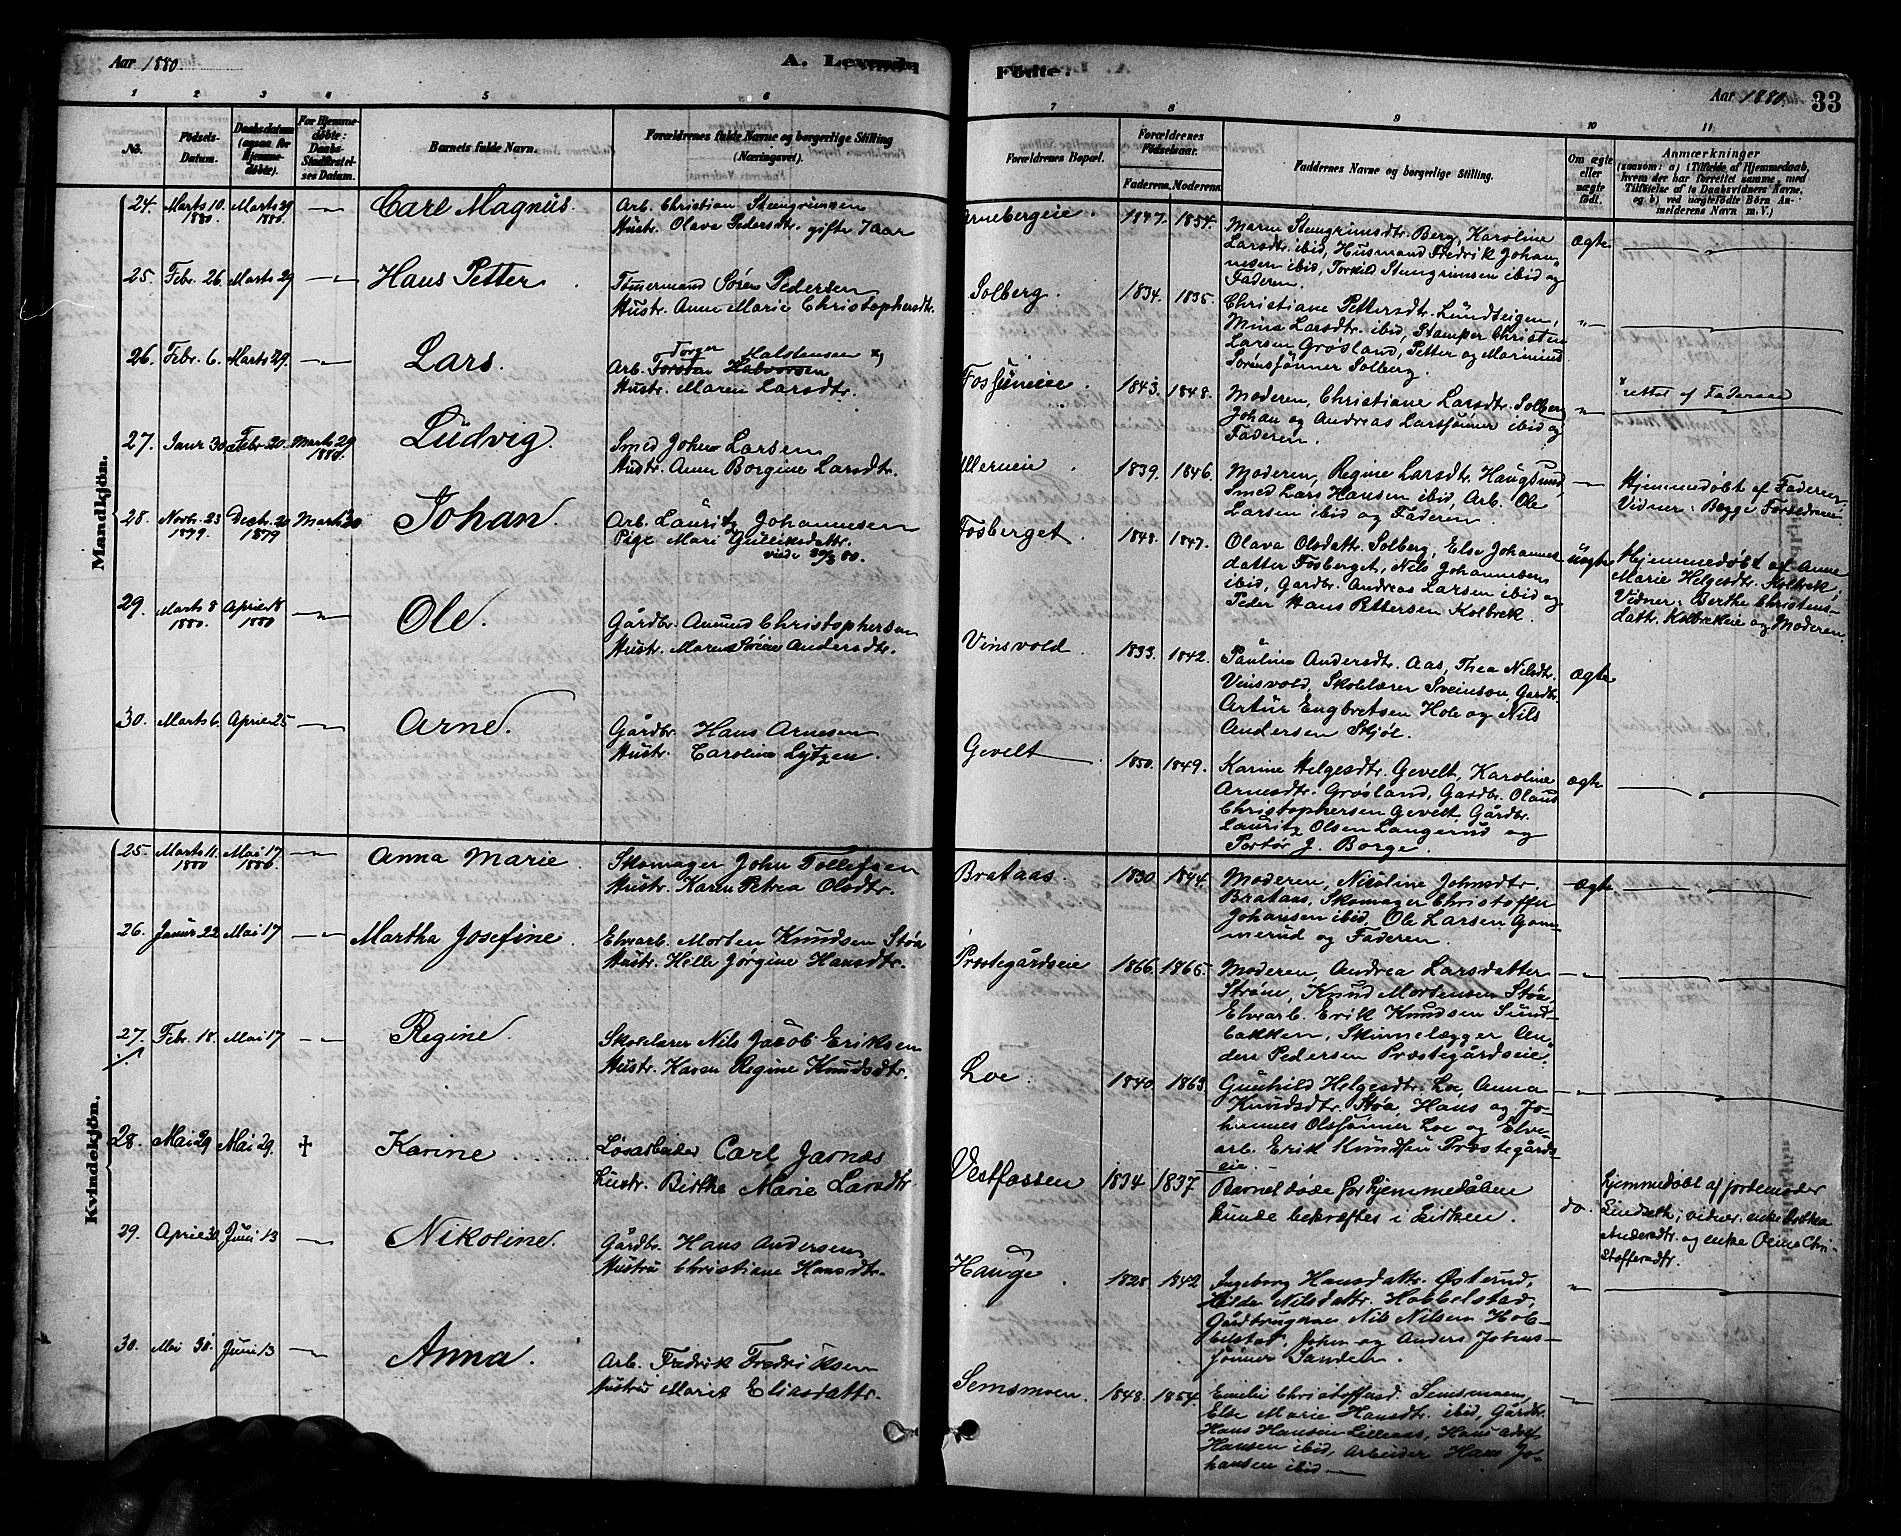 Aar 1880.
A. Levende
Fødte.
Aar 1880.
33
1 2 3 4 5 6
7 8 9 10 11
No.
Fødsels-
Datum.
Daabsdatum
(ogsaa for
Hjemme-
døbte).
For Hjemme-
døbte:
Daabs-
Stadfæstel-
ses Datum.
Barnets fulde Navn.
Forældrenes fulde Navne og borgerlige Stilling
(Næringsvei).
Forældrenes Bopæl.
Forældrenes
Fødselsaar.
Faderens. Moderens.
Faddernes Navne og borgerlige Stilling.
Om ægte
eller
uægte
født.
Anmærkninger
(saasom: a) i Tilfælde af Hjemmedaab,
hvem der har forrettet samme, med
Tilføielse af to Daabsvidners Navne,
og b) ved uægtefødte Børn An-
melderens Navn m. V.)
Mandkjøn.
24. Marts 10. 1880 Marts 29 1880 Carl Magnus.
Arb. Christian Steengrimsen
Hustr. Olava Pedersdtr. gifte 7 aar
Arnebergeie. 1847. 1854.
Maren Stengrimsdtr. Berg, Karoline
Larsdtr. ibid, Husmand Fredrik Johan-
nesen ibid, Torkild Stengrimsen ibid og
Faderen.
ægte
25. Febr. 26. Marts 29 Hans Petter
Tømmermand Søren Pedersen
Hustr. Anne Marie Christophersdtr.
Solberg. 1834. 1835.
Christiane Pettersdtr. Lundteigen,
Mina Larsdtr. ibid, Stamper Christen
Larsen Grøsland, Petter og Marinius
Sørensønner Solberg.
26. Febr. 6. Marts 29. Lars.
Torger Halstensen x)
Arb. Torstan Halvorsen
Hustr. Maren Larsdtr.
Fosseneie 1843. 1848.
Moderen, Christiane Larsdtr. Solberg
Johan og Andreas Larssønner ibid og
Faderen.
x rettet af Faderen
27. Janr 30 Febr. 20. Marts 29 1880. Ludvig.
Smed Johan Larsen
Hustr. Anne Borgine Larsdtr.
Ullerneie 1839. 1846.
Moderen, Regine Larsdtr. Haugsund,
Smed Lars Hansen ibid, Arb. Ole
Larsen ibid og Faderen.
Hjemmedøbt af Faderen,
Vidner: Begge Forældrene
28. Novbr. 23 1879 Decbr. 20 1879 Marts 30 Johan.
Arb. Lauritz Johannesen
Pige Mari Gulliksdattr.
viede 30/3 80.
Fosberget 1848. 1847.
Olava Olsdattr. Solberg, Else Johannes
datter Fosberget, Nils Johannesen
ibid, Gardbr. Andreas Larsen ibid og
Peder Hans Pettersen Kolbræk.
uægte
Hjemmedøbt af Anne
Marie Helgesdtr. Kolbræk;
Vidner: Berthe Christens-
dattr. Kolbrækeie og Moderen
29. Marts 8 1880. April 18 1880 Ole.
Gårdbr. Amund Christophersen
Hustr. Maren Sørine Andersdtr.
Vinsvold. 1833. 1842.
Pauline Andersdtr. Aas, Thea Nilsdtr.
Vinsvold, Skolelærer Sveinson, Gardbr.
Artur Engbretsen Hole og Nils
Andersen Skjøl.
ægte
30. Marts 6. April 25 Arne.
Gårdbr. Hans Arnesen
Hustr. Caroline Lytzen.
Gevelt 1850. 1849.
Karine Helgesdtr. Gevelt, Karoline
Arnesdtr. Grøsland, Gardbr. Olaus
Christophersen Gevelt, Gårdbr.
Lauritz Olsen Langerud og
Portør J. Borge.
ægte
Kvindekjøn.
25. Marts 11. 1880 Mai 17 1880. Anna Marie.
Skomager John Tollefsen
Hustr. Karen Petrea Olsdtr.
Brataas. 1830. 1844.
Moderen, Nicoline Johnsdtr.
Brataas, Skomager Christoffer
Johansen ibid, Ole Larsen Gom-
merud og Faderen.
ægte
26. Janur 22 Mai 17 Martha Josefine.
Elvearb. Morten Knudsen Støa
Hustr. Helle Jørgine Hansdtr.
Præstegårdseie 1866. 1865.
Moderen, Andrea Larsdatter
Strøne, Knud Mortensen Støa,
Elvearb. Erik Knudsen Sund-
bakken, Skinnelægger An-
ders Pedersen Præstegårdseie.
27. Febr. 18. Mai 17 Regine.
Skolelærer Nils Jacob Eriksen
Hustr. Karen Regine Knudsdtr.
Loe. 1840. 1863.
Gunhild Helgesdtr. Loe, Anna
Knudsdtr. Støa, Hans og Jo-
hannes Olssønner Loe og Elve-
arb. Erik Knudsen Præstegårds
eie.
28. Mai 29 Mai 29. † Karine
Løsarbeider Carl Jarnæs
Hustr. Birthe Marie Larsdtr
Vestfossen 1834 1837
Barnet døde før hjemmedåben
kunde bekræftes i kirken.
do.
Hjemmedøbt af jordemoder
Lindseth; vidner: enke
Andersdtr. og enke Oline Chri-
stoffersdtr.
29. April 30 Juni 13 Nikoline.
Gårdbr. Hans Andersen
Hustru Christiane Hansdtr.
Hauge 1828. 1842.
Ingeborg Hansdattr. Østerud,
Hilda Nilsdattr. Hobbelstad,
Gårdbrugerne Nils Nilsen Hob-
belstad, Johan og Anders Johns-
sønner Sanden.
30. Mai 30. Juni 13 Anna.
Arb. Fredrik Fredriksen
Hustru Marie Eliasdattr.
Semsmoen 1848. 1854.
Emilie Christoffersd. Semsmoen,
Else Marie Hansdtr. ibid, Gårdbr.
Hans Hansen Lilleaas, Hans Adolf
Hansen ibid, Arbeider Hans Jo-
hansen ibid